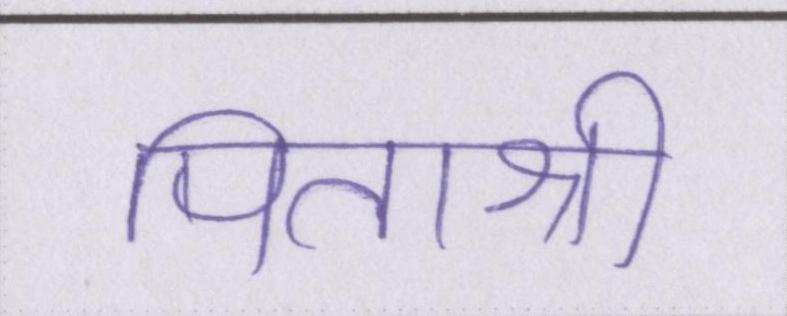 पिताश्री